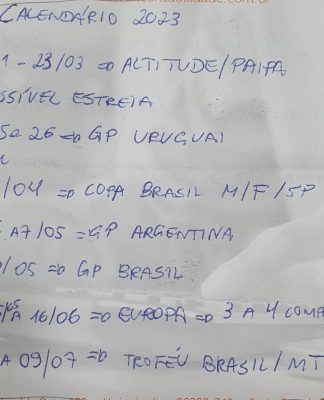 CALENDÁRIO 2023
1 - 23/03 => ALTITUDE/PAIPA
SSÍVEL ESTREIA
5 e 26 => GP URUGUAI
/04 => COPA BRASIL M/F/SP
A 7/05 => GP ARGENTINA
/05 => GP BRASIL
/05 A 16/06 => EUROPA => 3 A 4 COMP
A 09/07 => TROFÉU BRASIL/MT